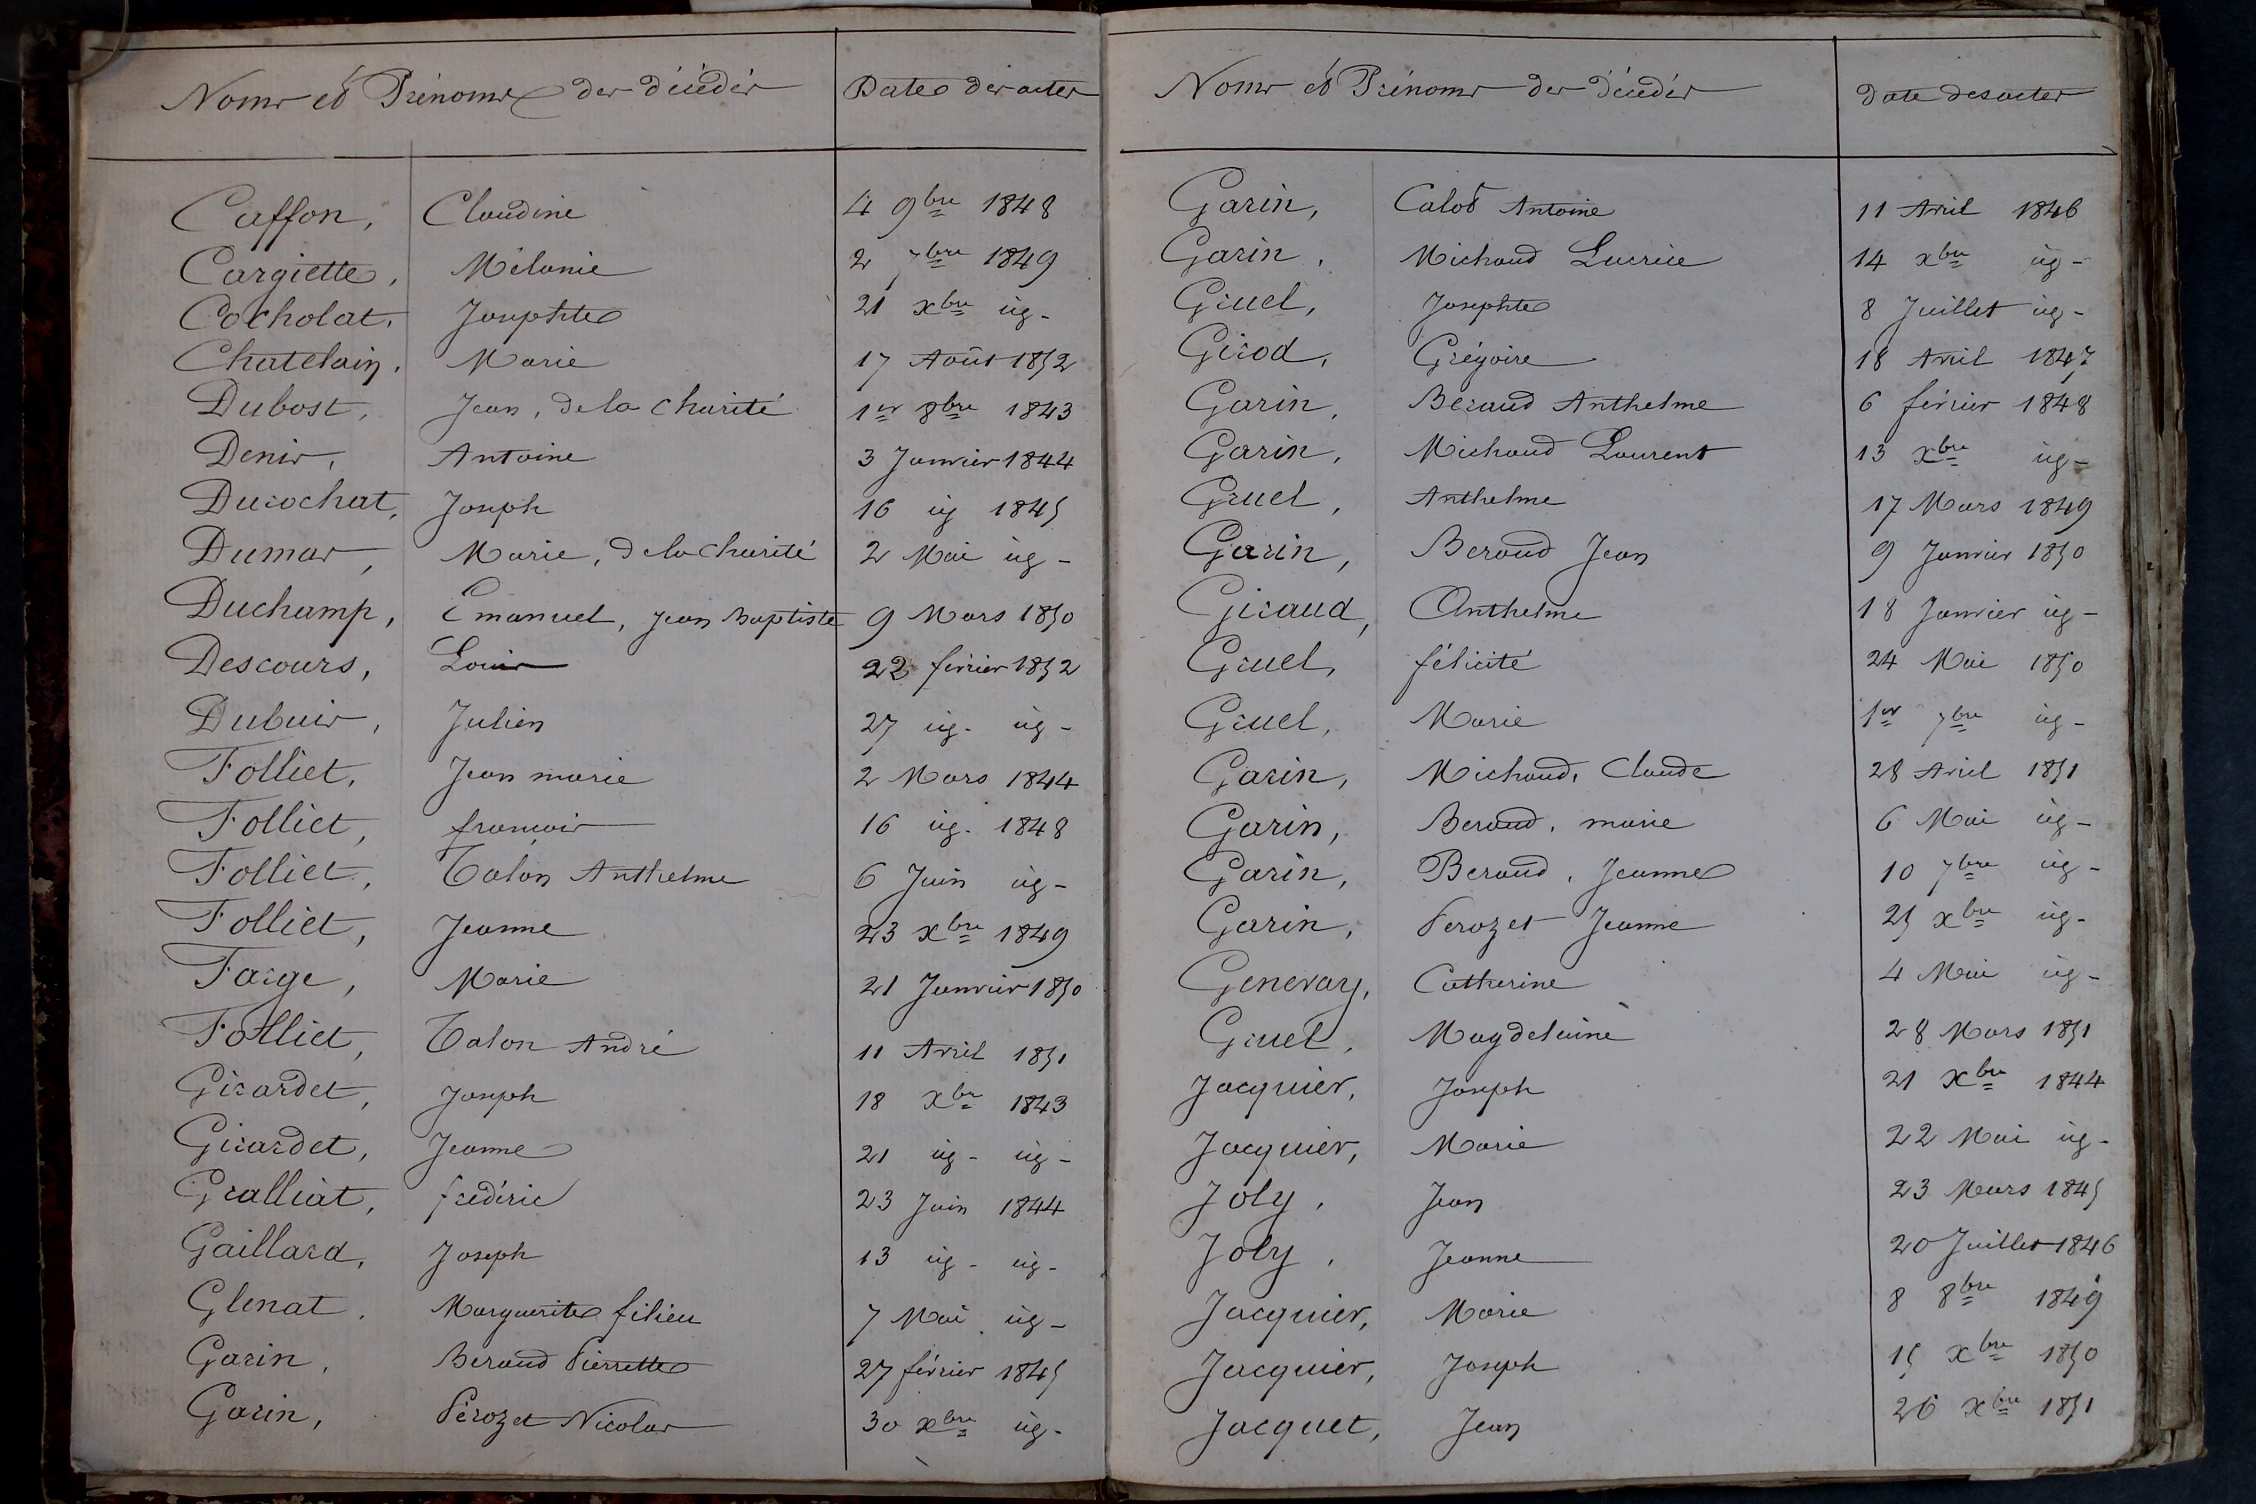 Noms et Prénoms des décédés Date des actes
Caffon, Claudine 4 9bre 1848
Cargiette, Mélanie 2 7bre 1849
Cocholat, Josephte 21 xbre ig-
Chatelain, Marie 17 Août 1852
Dubost, Jean, de la charité 1er 8bre 1843
Denis, Antoine 3 Janvier 1844
Durochat, Joseph 16 ig 1845
Dumas, Marie, de la charité 2 Mai ig-
Duchamp, Emanuel, Jean Baptiste 9 Mars 1850
Descours, Louis 22 février 1852
Dubuis, Julien 27 ig- ig-
Folliet, Jean marie 2 Mars 1844
Folliet, françois 16 ig. 1848
Folliet, Talon Anthelme 6 Juin ig-
Folliet, Jeanne 23 xbre 1849
Farge, Marie 21 Janvier 1850
Folliet, Talon André 11 Avril 1851
Girardet, Joseph 18 xbre 1843
Girardet, Jeanne 21 ig- ig-
Gralliat, frédéric 23 Juin 1844
Gaillard, Joseph 13 ig- ig-
Glenat, Marguerite filieu 7 Mai ig-
Garin, Beraud Pierrette 27 février 1845
Garin, Pérozet Nicolas 30 xbre ig-
Noms et Prénoms des décédés Date des actes
Garin, Calot Antoine 11 Avril 1846
Garin, Michaud Lucrice 14 xbre ig-
Gruel, Josephte 8 Juillet ig-
Girod, Grégoire 18 Avril 1847
Garin, Beraud Anthelme 6 février 1848
Garin, Michaud Laurent 13 xbre ig-
Gruel, Anthelme 17 Mars 1849
Garin, Beraud Jean 9 Janvier 1850
Giraud, Anthelme 18 Janvier ig-
Gruel, félicité 24 Mai 1850
Gruel, Marie 1er 7bre ig-
Garin, Michaud, Claude 28 Avril 1851
Garin, Beraud, marie 6 Mai ig-
Garin, Beraud, Jeanne 10 7bre ig-
Garin, Perozet Jeanne 25 xbre ig-
Genevay, Catherine 4 Mai ig-
Gruel, Magdelaine 28 Mars 1851
Jacquier, Joseph 21 xbre 1844
Jacquier, Marie 22 Mai ig-
Joly, Jean 23 Mars 1845
Joly, Jeanne 20 Juillet 1846
Jacquier, Marie 8 8bre 1849
Jacquier, Joseph 15 xbre 1850
Jacquet, Jean 26 xbre 1851